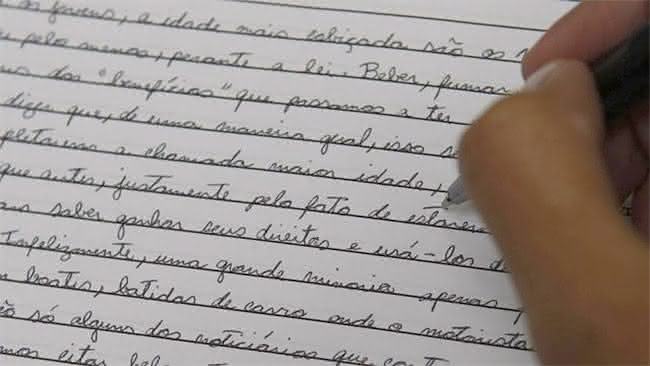 os jovens, a idade mais cobiçada são os
pelo menos, perante a lei. Beber, fumar
dos "benefícios" que passamos a ter
dizer que, de uma maneira geral, isso
a chamada maior idade,
que antes, justamente pelo fato de
saber ganhar seus direitos e usá-los
Infelizmente, uma grande minoria apenas,
boates, batidas de carro onde o motorista
só alguns dos noticiários que
citar